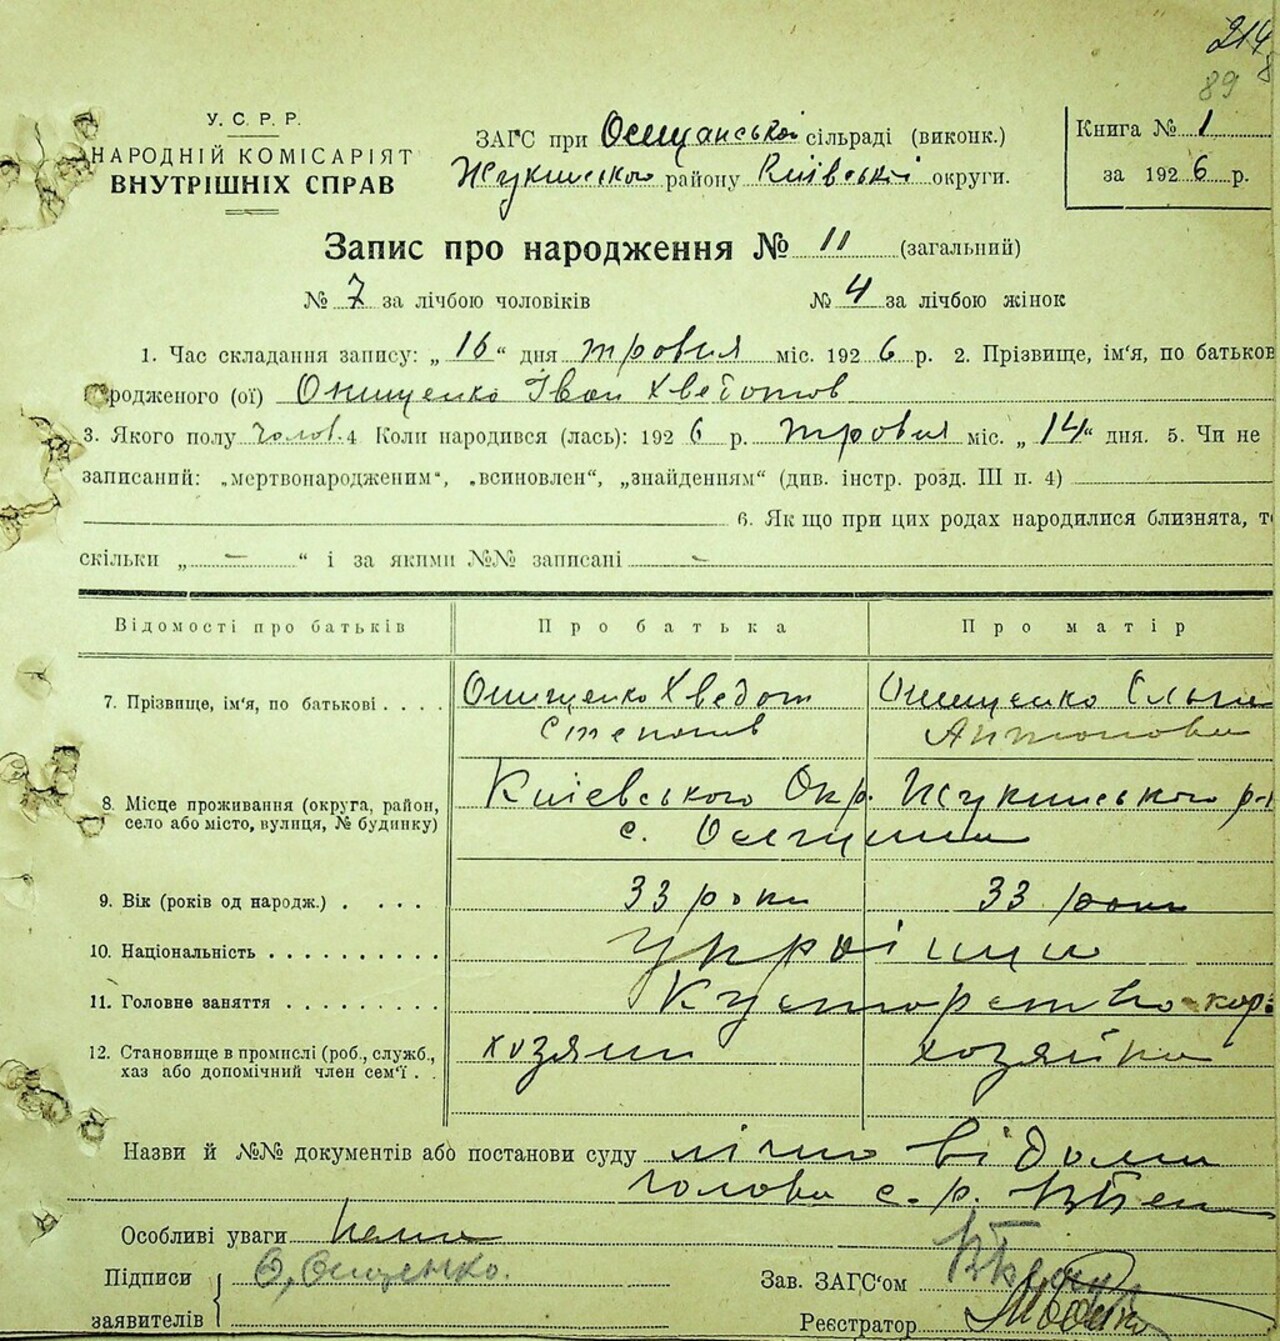 214
8
89
У. С. Р. Р.
НАРОДНІЙ КОМІСАРІЯТ
ВНУТРІШНІХ СПРАВ
ЗАГС при Осещанській сільраді (виконк.)
Жукинського району Київській округи.
Книга № 1
за 1926 р.
Запис про народження № 11 (загальний)
№ 7 за лічбою чоловіків № 4 за лічбою жінок
1. Час складання запису: „16“ дня травня міс. 1926 р. 2. Прізвище, ім'я, по батьков
родженого (ої) Онищенко Іван Хведотов
3. Якого полу чолов. 4 Коли народився (лась): 1926 р. травня міс. „14“ дня. 5. Чи не
записаний: „мертвонародженим“, „всиновлен“, „знайденням“ (див. інстр. розд. III п. 4)
6. Як що при цих родах народилися близнята, т
скільки „ — “ і за якими №№ записані —
Відомості про батьків Про батька Про матір
7. Прізвище, ім'я, по батькові . . . . Онищенко Хведот Онищенко
Степанів Антонова
8. Місце проживання (округа, район, село або місто, вулиця, № будинку) Київського Окр. Жукинського р-
с. Осещина
9. Вік (років од народж.) . . . . 33 роки 33 роки
10. Національність . . . . . . . . . . українці
11. Головне заняття . . . . . . . . . Кустарство
12. Становище в промислі (роб., служб., хаз або допомічний член сем'ї . . хозяин хозяйка
Назви й №№ документів або постанови суду лічно відомі
голова с. р.
Особливі уваги нема
Підписи
заявителів О. Онищенко.
Зав. ЗАГС'ом
Реєстратор